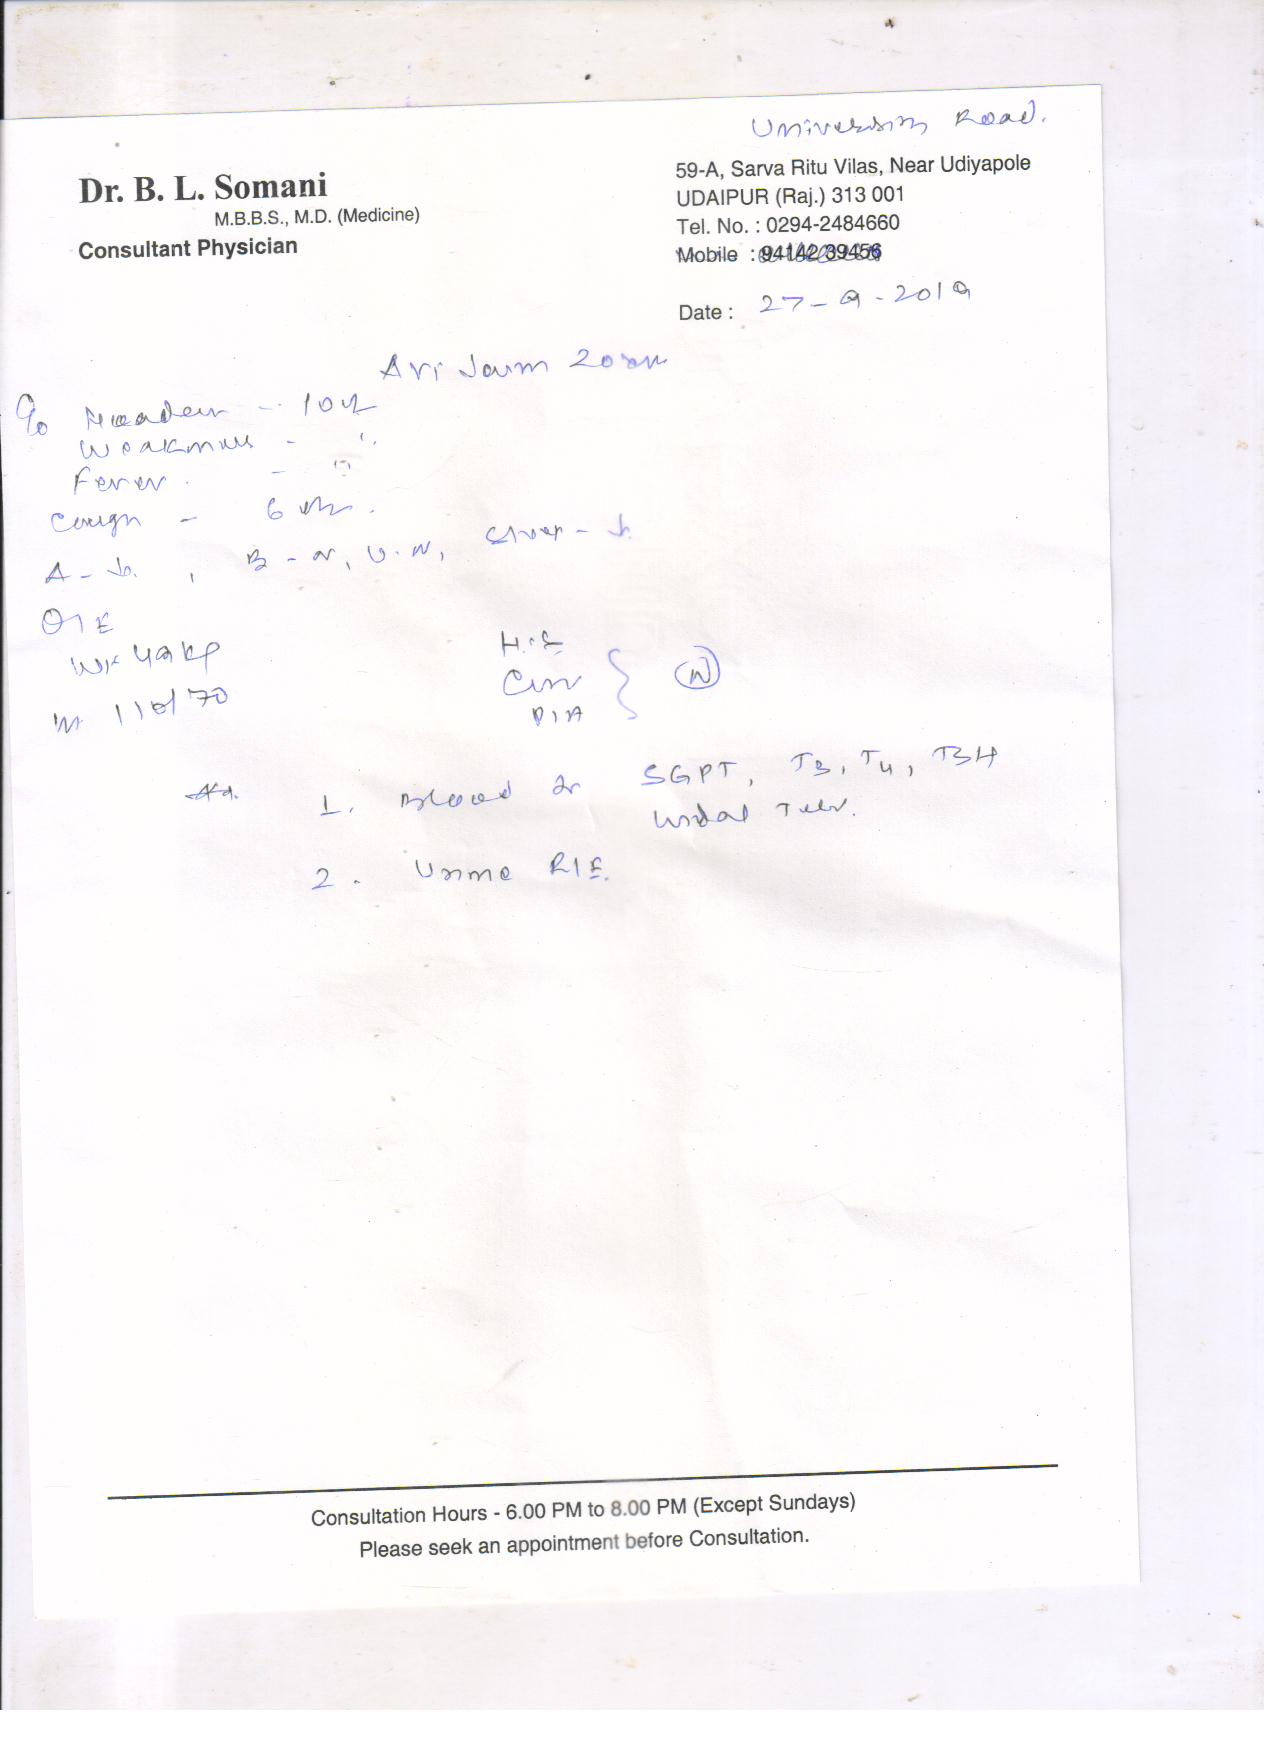 University Road.
Dr. B. L. Somani
M.B.B.S., M.D. (Medicine)
Consultant Physician
59-A, Sarva Ritu Vilas, Near Udiyapole
UDAIPUR (Raj.) 313 001
Tel. No. : 0294-2484660
Mobile : 94142 39456
Date : 27-9-2019
Avi Jain 20
C/o Headache -
Weakness - "
Fever - "
Cough - 6
A - , B - N, U - N, Sleep -
O/E
Wt 49 kg
110/70
H.S
CNS
P/A
N
Ad.
1. Blood for SGPT, T3, T4, TSH
Widal Test.
2. Urine R/E.
Consultation Hours - 6.00 PM to 8.00 PM (Except Sundays)
Please seek an appointment before Consultation.